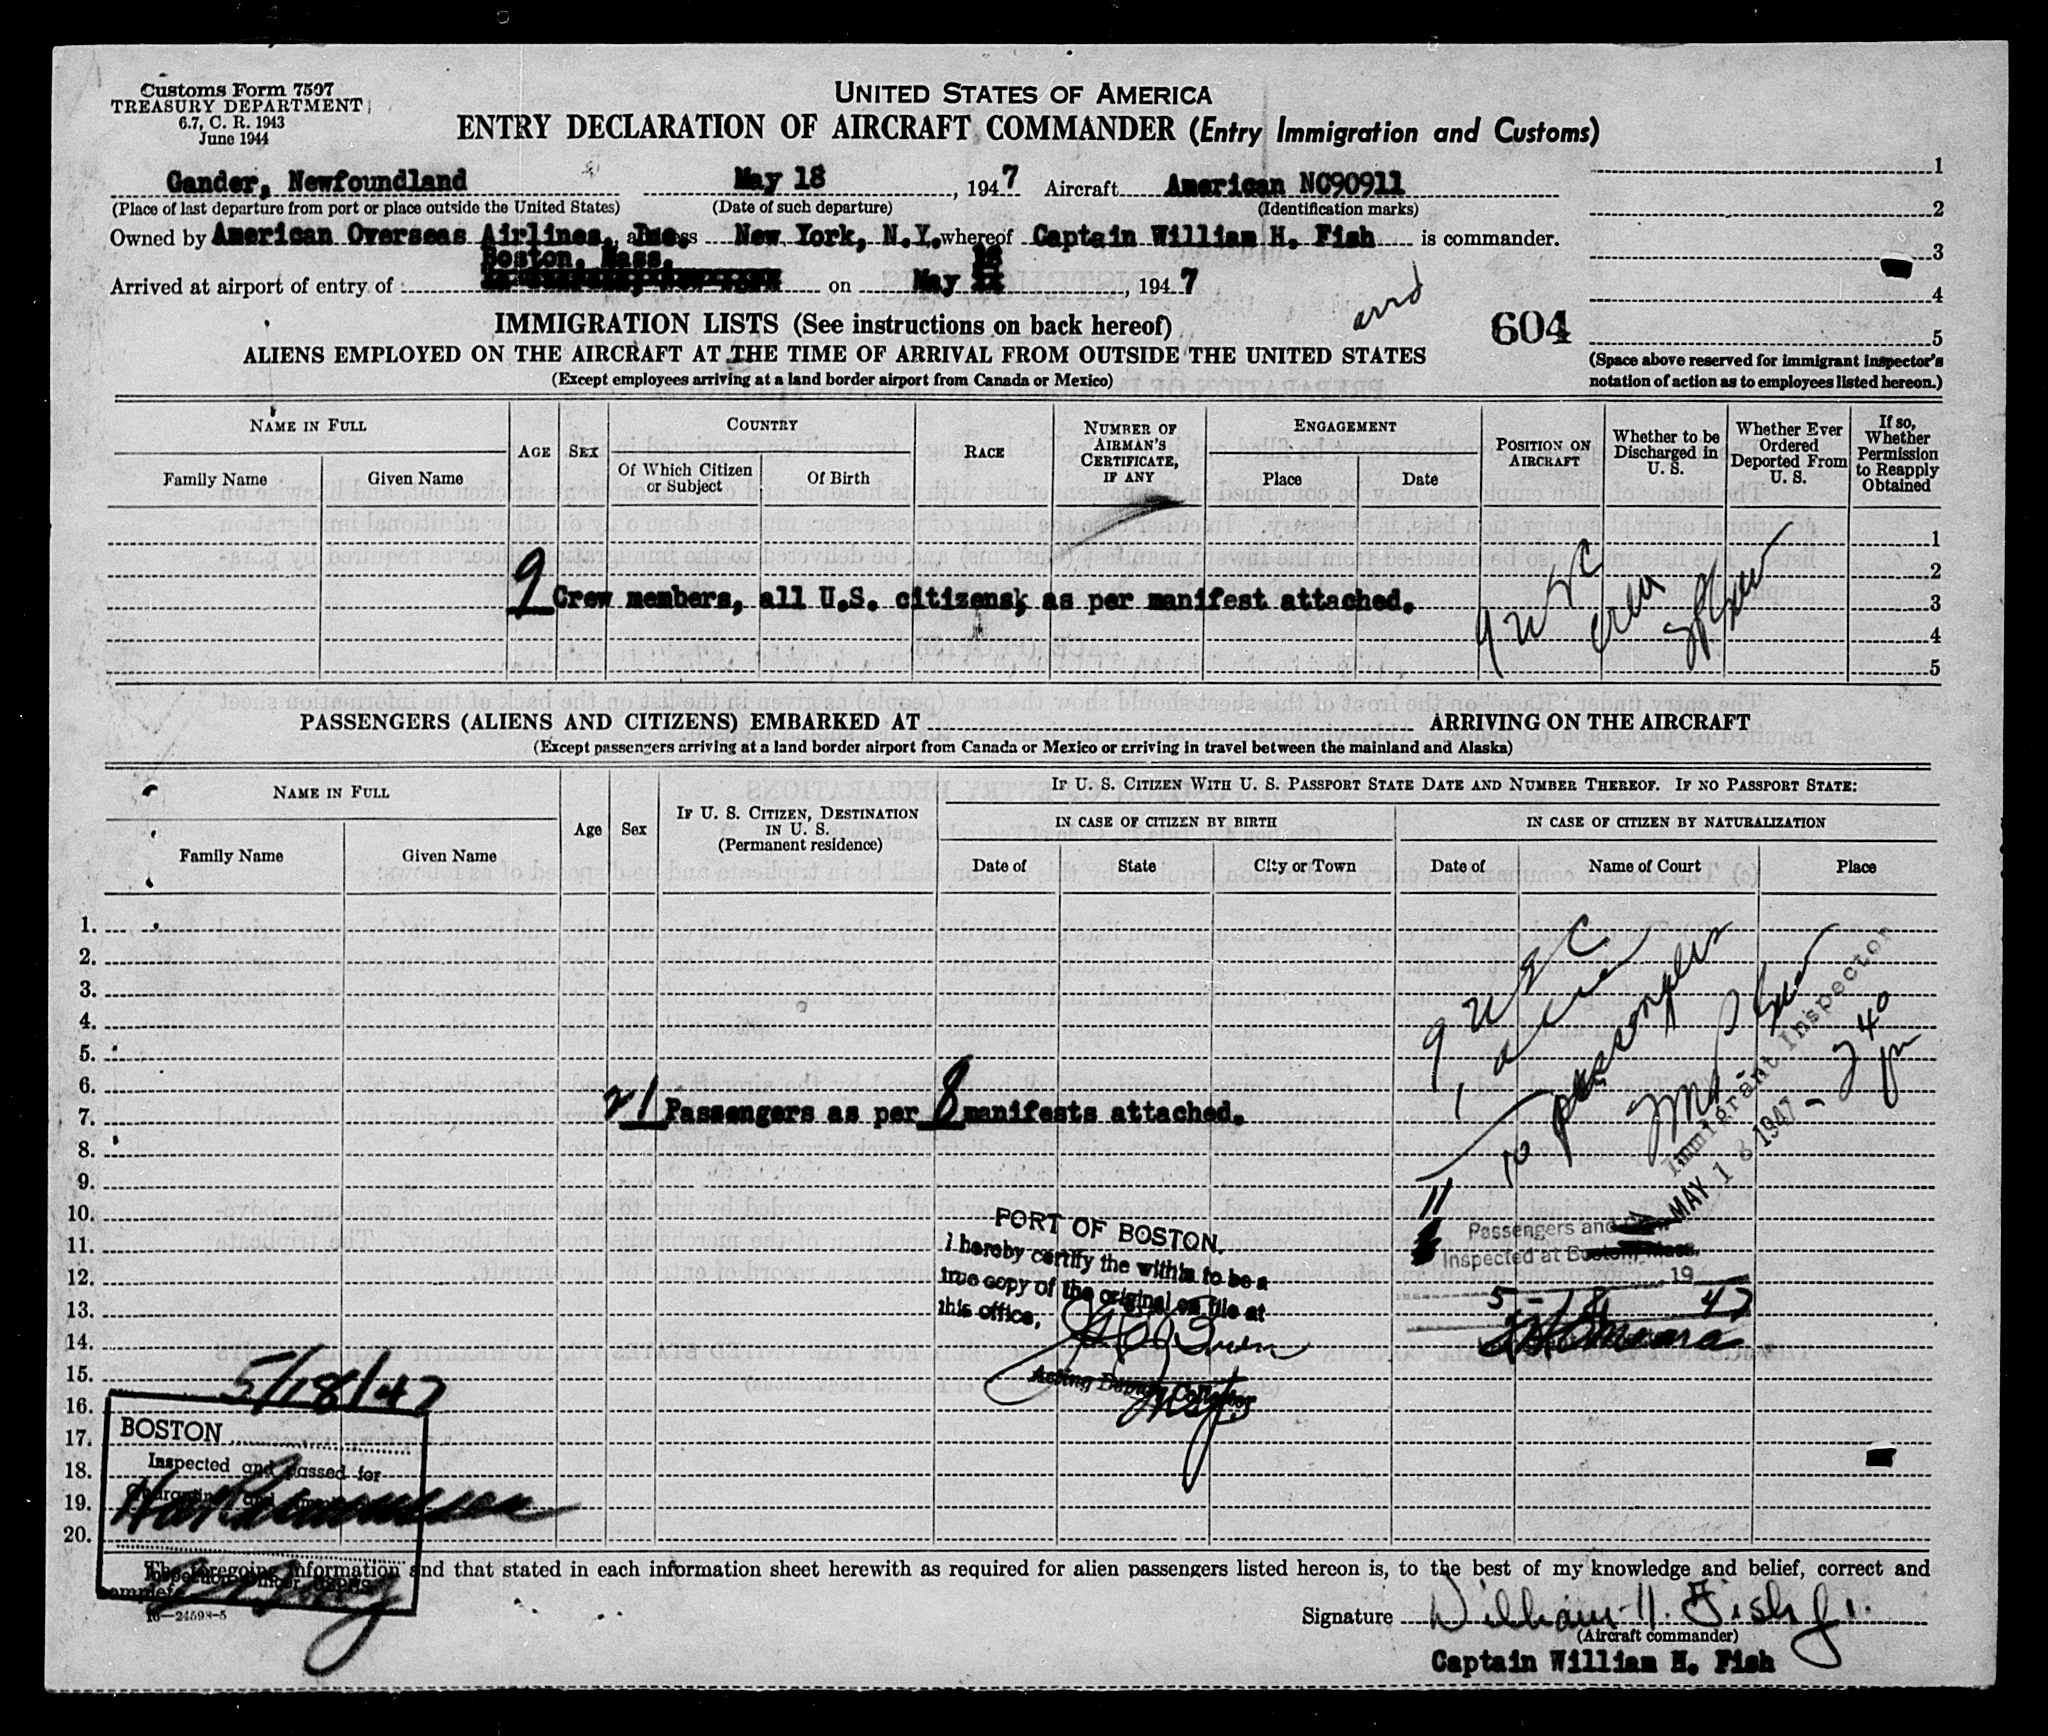 Customs Form 7507
TREASURY DEPARTMENT
6.7, C. R. 1943
June 1944
UNITED STATES OF AMERICA
ENTRY DECLARATION OF AIRCRAFT COMMANDER (Entry Immigration and Customs)
Gander, Newfoundland May 18, 1947 Aircraft American NC90911
(Place of last departure from port or place outside the United States) (Date of such departure) (Identification marks)
Owned by American Overseas Airlines, Inc. New York, N.Y. whereof Captain William H. Fish is commander.
Boston, Mass. 18
Arrived at airport of entry of on May, 1947
1
2
3
4
5
(Space above reserved for immigrant inspector's
notation of action as to employees listed hereon.)
arrd
604
IMMIGRATION LISTS (See instructions on back hereof)
ALIENS EMPLOYED ON THE AIRCRAFT AT THE TIME OF ARRIVAL FROM OUTSIDE THE UNITED STATES
(Except employees arriving at a land border airport from Canada or Mexico)
NAME IN FULL
Family Name Given Name
AGE
SEX
COUNTRY
Of Which Citizen
or Subject
Of Birth
RACE
NUMBER OF
AIRMAN'S
CERTIFICATE,
IF ANY
ENGAGEMENT
Place Date
POSITION ON
AIRCRAFT
Whether to be
Discharged in
U. S.
Whether Ever
Ordered
Deported From
U. S.
If so,
Whether
Permission
to Reapply
Obtained
1
2
9 Crew members, all U.S. citizens, as per manifest attached. 3
4
5
9 USC
crew
PASSENGERS (ALIENS AND CITIZENS) EMBARKED AT ARRIVING ON THE AIRCRAFT
(Except passengers arriving at a land border airport from Canada or Mexico or arriving in travel between the mainland and Alaska)
NAME IN FULL
Family Name Given Name
Age
Sex
IF U. S. CITIZEN, DESTINATION
IN U. S.
(Permanent residence)
IF U. S. CITIZEN WITH U. S. PASSPORT STATE DATE AND NUMBER THEREOF. IF NO PASSPORT STATE:
IN CASE OF CITIZEN BY BIRTH
Date of State City or Town
IN CASE OF CITIZEN BY NATURALIZATION
Date of Name of Court Place
1.
2.
3.
4.
5.
6.
7. 21 Passengers as per 8 manifests attached.
8.
9.
10.
11.
12.
13.
14.
15.
16.
17.
18.
19.
20.
9 USC
1 alien
10 passengers
Immigrant Inspector
MAY 18 1947 - 2 40 pm
11
Passengers and
Inspected at Boston, Mass.
19
5-18 47
PORT OF BOSTON.
I hereby certify the within to be a
true copy of the original on file at
this office.
Acting Deputy Collector
5/18/47
BOSTON
Inspected and passed for
The foregoing information and that stated in each information sheet herewith as required for alien passengers listed hereon is, to the best of my knowledge and belief, correct and
complete
16—24598-5
Signature William H. Fish Jr.
(Aircraft commander)
Captain William H. Fish